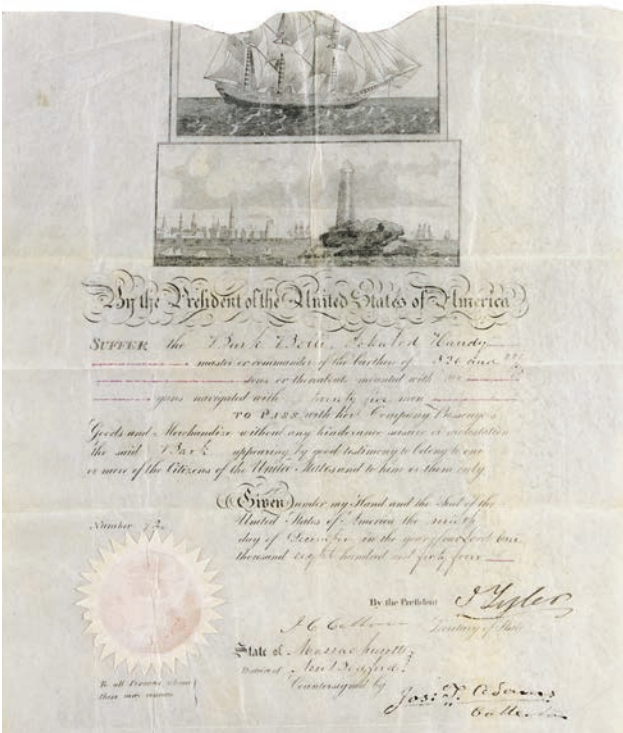 By the President of the United States of America
SUFFER the Bark Handy
master or commander of the burthen of
tons or thereabouts mounted with no
guns navigated with twenty five men
TO PASS with her Company Passengers
Goods and Merchandize without any hinderance seisure or molestation
the said Bark appearing by good testimony to belong to one
or more of the Citizens of the United States and to him or them only
Given under my Hand and the Seal of the
United States of America the
day of December in the year of our Lord one
thousand eight hundred and forty four
Number
By the President J Tyler
J C Calhoun Secretary of State
State of Massachusetts
District of New Bedford
Countersigned by
Jos: T. Adams
Collector
To all Persons whom
these may concern